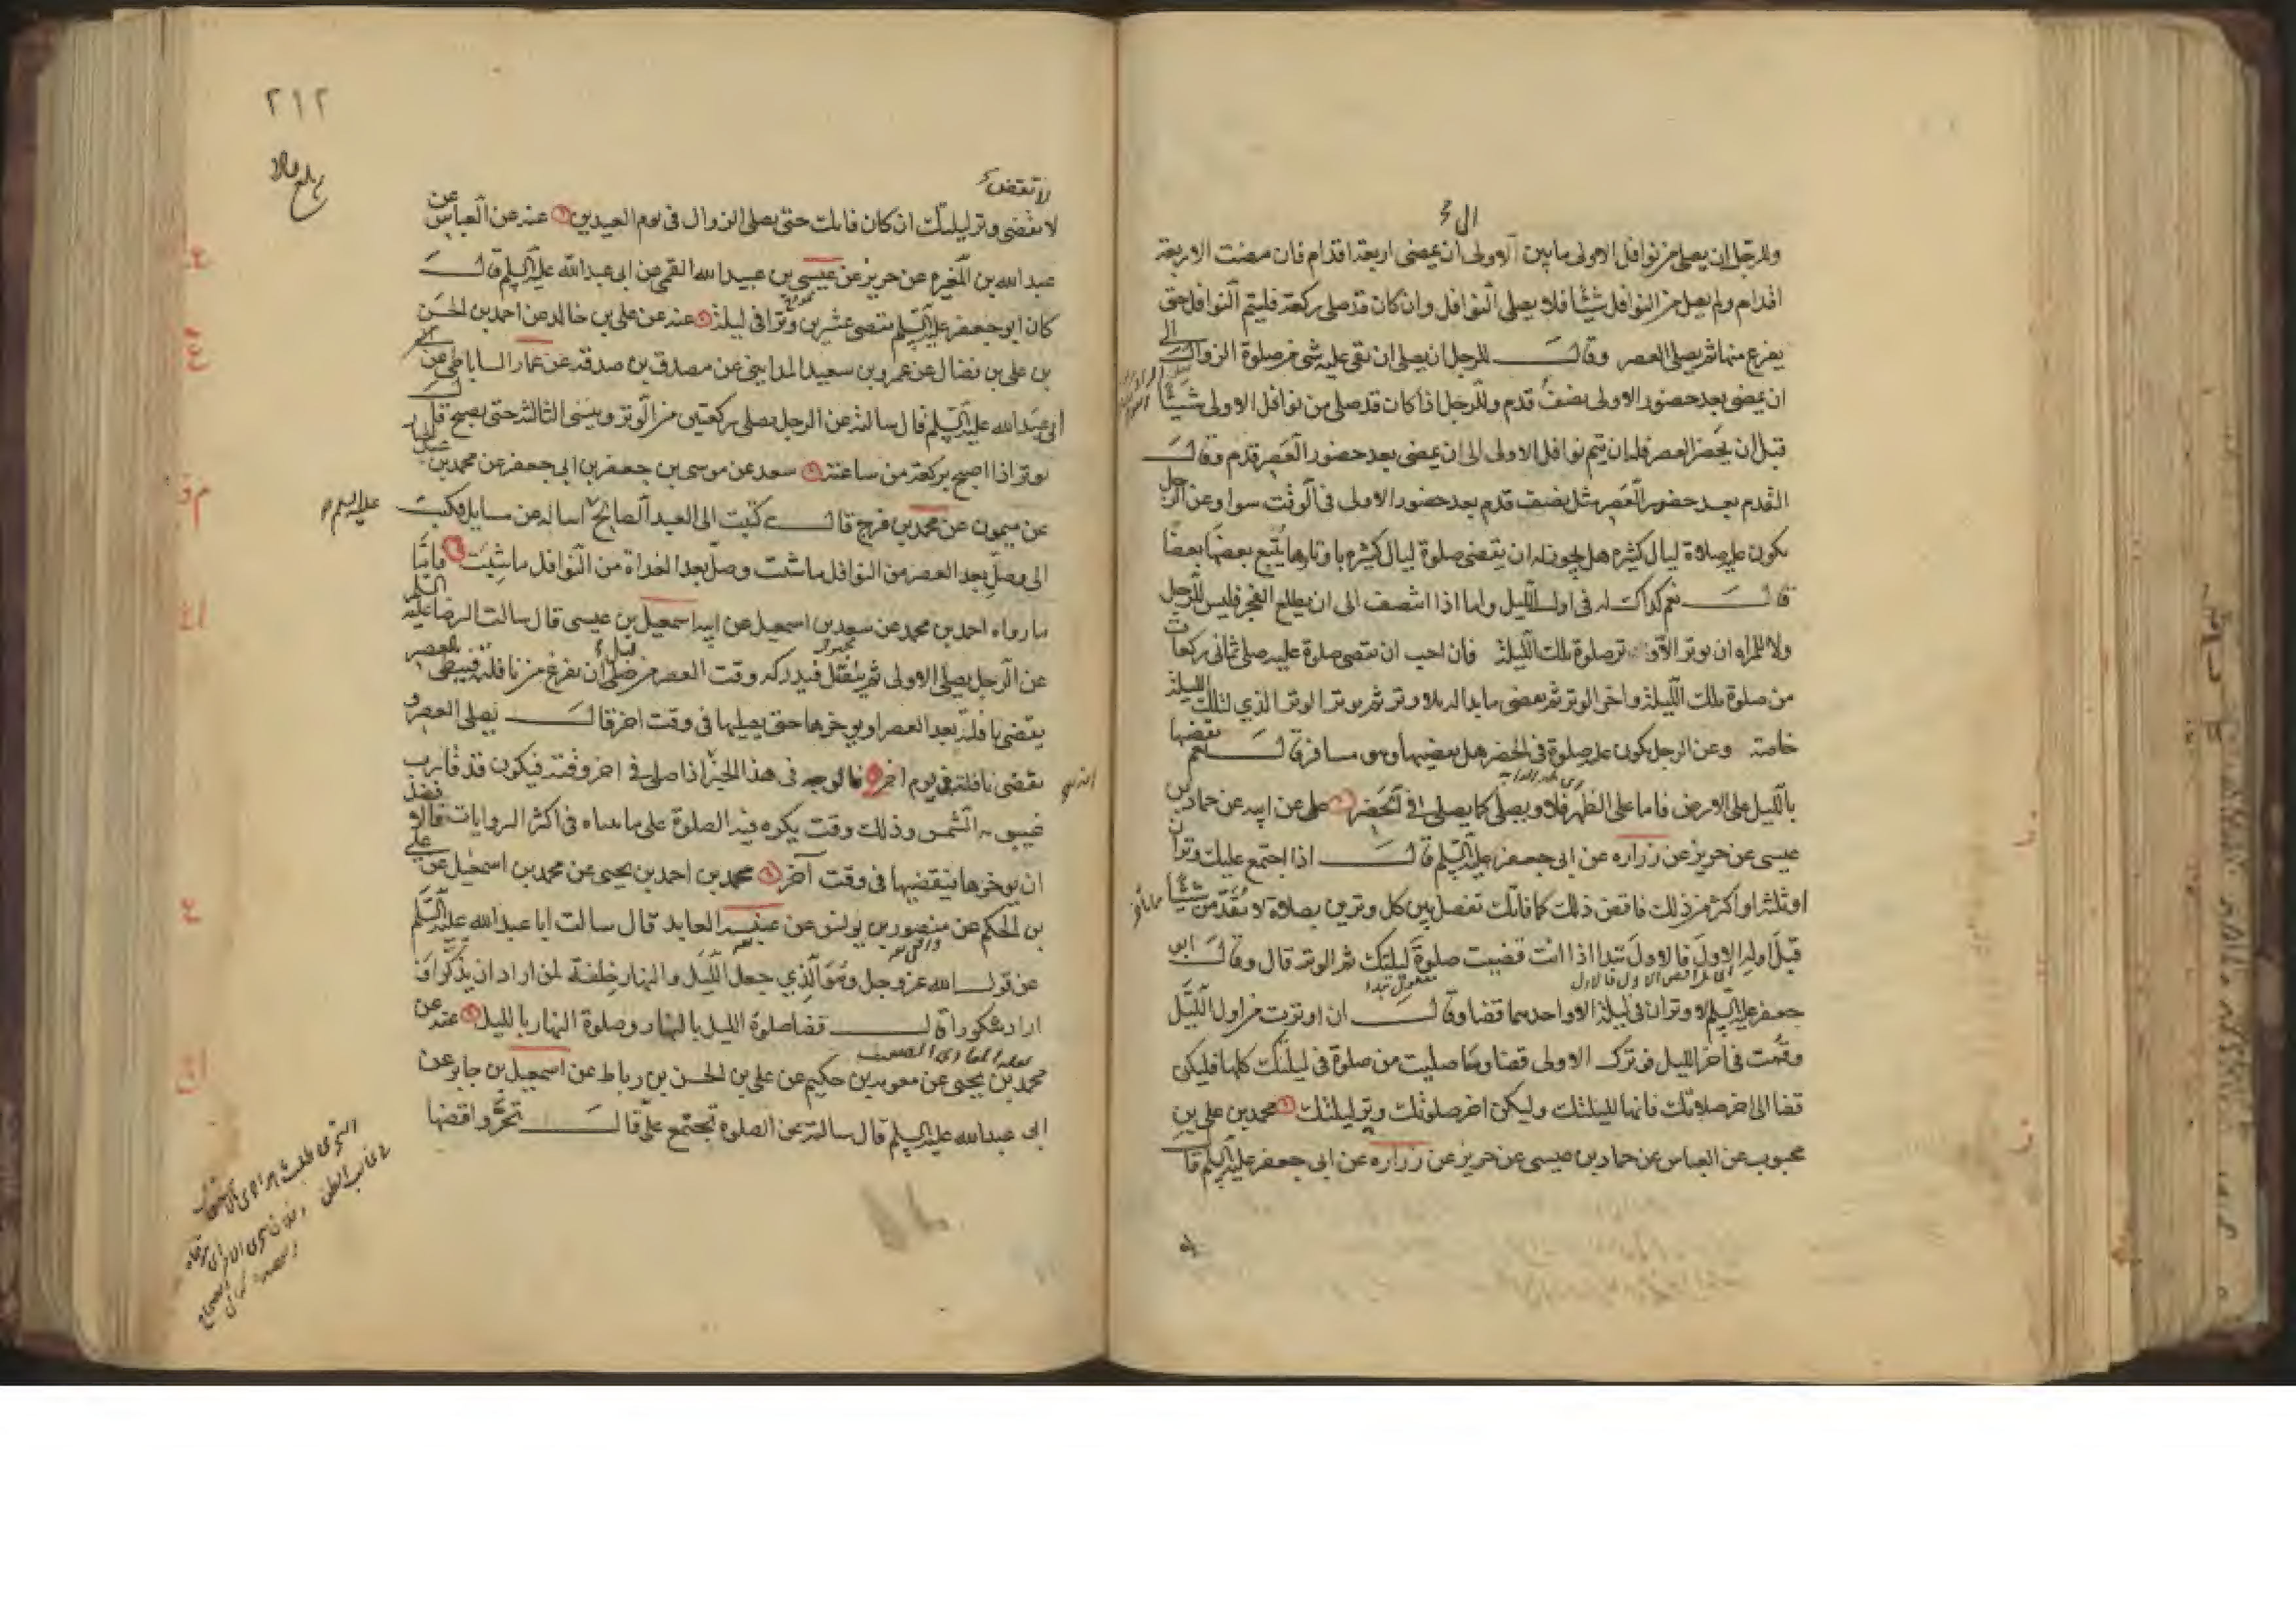 وللرجل ان يصلى من نوافل الاولى ما بين الاولى الى ان يمضى اربعة اقدام فان مضت الاربعة
اقدام ولم يصل من النوافل شيئا فلا يصلى النوافل وان كان قد صلى ركعة فليتم النوافل حتى
يفرغ منها ثم يصلى العصر وقال للرجل ان يصلى ان بقى عليه شى من صلوة الزوال الى
ان يمضى بعد حضور الاولى نصف قدم وللرجل اذا كان قد صلى من نوافل الاولى شيئا
قبل ان يحضر العصر فله ان يتم نوافل الاولى الى ان يمضى بعد حضور العصر قدم وقال
القدم بعد حضور العصر مثل نصف قدم بعد حضور الاولى فى الوقت سوا وعن الرجل
يكون عليه صلاة ليال كثيرة هل يجوز له ان يقضى صلوة ليال كثيرة باوتارها يتبع بعضها بعضا
قال نعم كذلك له فى اول الليل واما اذا انتصف الى ان يطلع الفجر فليس للرجل
ولا للمراه ان يوتر الا وتر صلوة تلك الليلة فان احب ان يقضى صلوة عليه صلى ثمانى ركعات
من صلوة تلك الليلة واخر الوتر ثم يقضى ما بدا له بلا وتر ثم يوتر الوتر الذي لتلك الليلة
خاصة وعن الرجل يكون عليه صلوة فى الحضر هل يقضيها وهو مسافر قال نعم يقضيها
بالليل على الارض فاما على الظهر فلا ويصلى كما يصلى فى الحضر على عن ابيه عن حماد بن
عيسى عن حريز عن زراره عن ابى جعفر عليه السلم قال اذا اجتمع عليك وتران
او ثلثه او اكثر من ذلك فاقض ذلك كما فاتك تفصل بين كل وترين بصلاة لا تقدمن شيئا
قبل اوله الاول فالاول تبدا اذا انت قضيت صلوة ليلتك ثم الوتر قال وقال ابو
جعفر عليه السلم لا وتران فى ليلة الا واحدهما قضا وقال ان اوترت من اول الليل
وقمت فى اخر الليل فوترك الاولى قضا وما صليت من صلوة فى ليلتك كلها فليكن
قضا الى اخر صلاتك فانها لليلتك وليكن اخر صلوتك وتر ليلتك محمد بن على بن
محبوب عن العباس عن حماد بن عيسى عن حريز عن زراره عن ابى جعفر عليه السلم قال
٢١٢
لا تقض
لا تقضى وتر ليلتك ان كان فاتك حتى يصلى الزوال فى يوم العيدين عنه عن العباس عن
عبد الله بن المغيره عن حريز عن عيسى بن عبد الله القمى عن ابى عبد الله عليه السلم قال
كان ابو جعفر عليه السلم يقضى عشرين وترا فى ليلة عنه عن على بن خالد عن احمد بن الحسن
بن على بن فضال عن عمرو بن سعيد المداينى عن مصدق بن صدقه عن عمار الساباطى عن
ابى عبد الله عليه السلم قال سالته عن الرجل يصلى ركعتين من الوتر وينسى الثالثه حتى يصبح قال
يوتر اذا اصبح بركعة من ساعته سعد عن موسى بن جعفر بن ابى جعفر عن محمد بن عبد الجبار
عن ميمون عن محمد بن فرج قال كتبت الى العبد الصالح اساله عن مسايل فكتب
عليه السلم
الى وصل بعد العصر من النوافل ما شئت وصل بعد الغداة من النوافل ما شئت فاما
ما رواه احمد بن محمد عن سعد بن اسمعيل عن ابيه اسمعيل بن عيسى قال سالت الرضا عليه السلم
عن الرجل يصلى الاولى ثم يتنفل فيدركه وقت العصر من قبل ان يفرغ من نافلته فيبطى بالعصر
يقضى نافلته بعد العصر او يوخرها حتى يصليها فى وقت اخر قال يصلى العصر و
يقضى نافلته فى يوم اخر فالوجه فى هذا الخبر اذا صلى فى اخر وقته فيكون قد قارب
غيبوبه الشمس وذلك وقت يكره فيه الصلوة على ما بيناه فى اكثر الروايات
ان يوخرها فيقضيها فى وقت آخر محمد بن احمد بن يحيى عن محمد بن اسمعيل عن على
بن الحكم عن منصور بن يونس عن عنبسه العابد قال سالت ابا عبد الله عليه السلم
عن قول الله عز وجل وهو الذي جعل الليل والنهار خلفة لمن اراد ان يذكر او
اراد شكورا قال قضا صلوة الليل بالنهار وصلوة النهار بالليل عنه عن
محمد بن يحيى عن معويه بن حكيم عن على بن الحسن بن رباط عن اسمعيل بن جابر عن
ابى عبد الله عليه السلم قال سالته عن الصلوة تجتمع على قال تحر واقضها